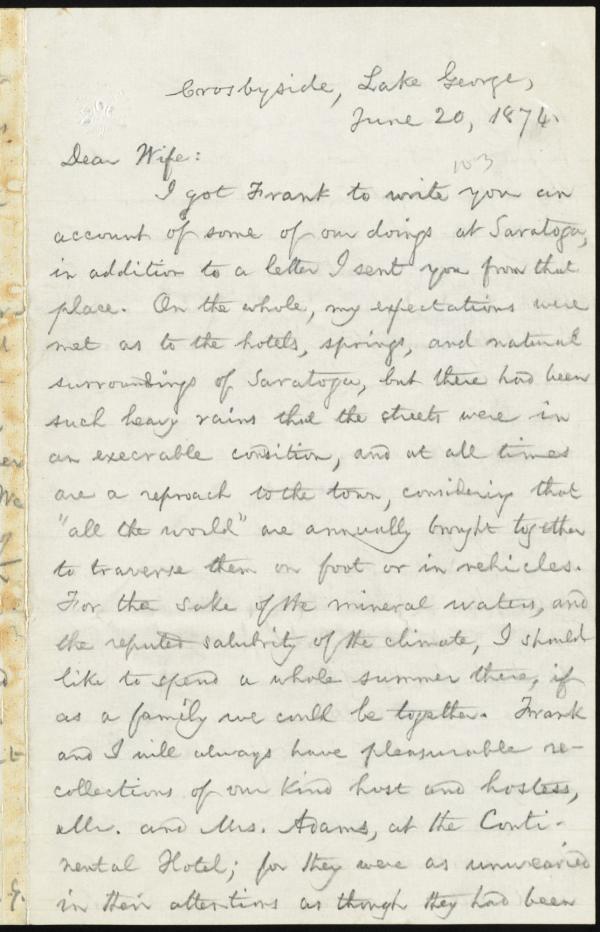 Crosbyside, Lake George,
June 20, 1874.
Dear Wife:
103
I got Frank to write you an
account of some of our doings at Saratoga,
in addition to a letter I sent you from that
place. On the whole, my expectations were
met as to the hotels, springs, and natural
surroundings of Saratoga, but there had been
such heavy rains that the streets were in
an execrable condition, and at all times
are a reproach to the town, considering that
"all the world" are annually brought together
to traverse them on foot or in vehicles.
For the sake of the mineral waters, and
the reputed salubrity of the climate, I should
like to spend a whole summer there, if
as a family we could be together. Frank
and I will always have pleasurable re-
collections of our kind host and hostess,
Mr. and Mrs. Adams, at the Conti-
nental Hotel; for they were as unwearied
in their attentions as though they had been